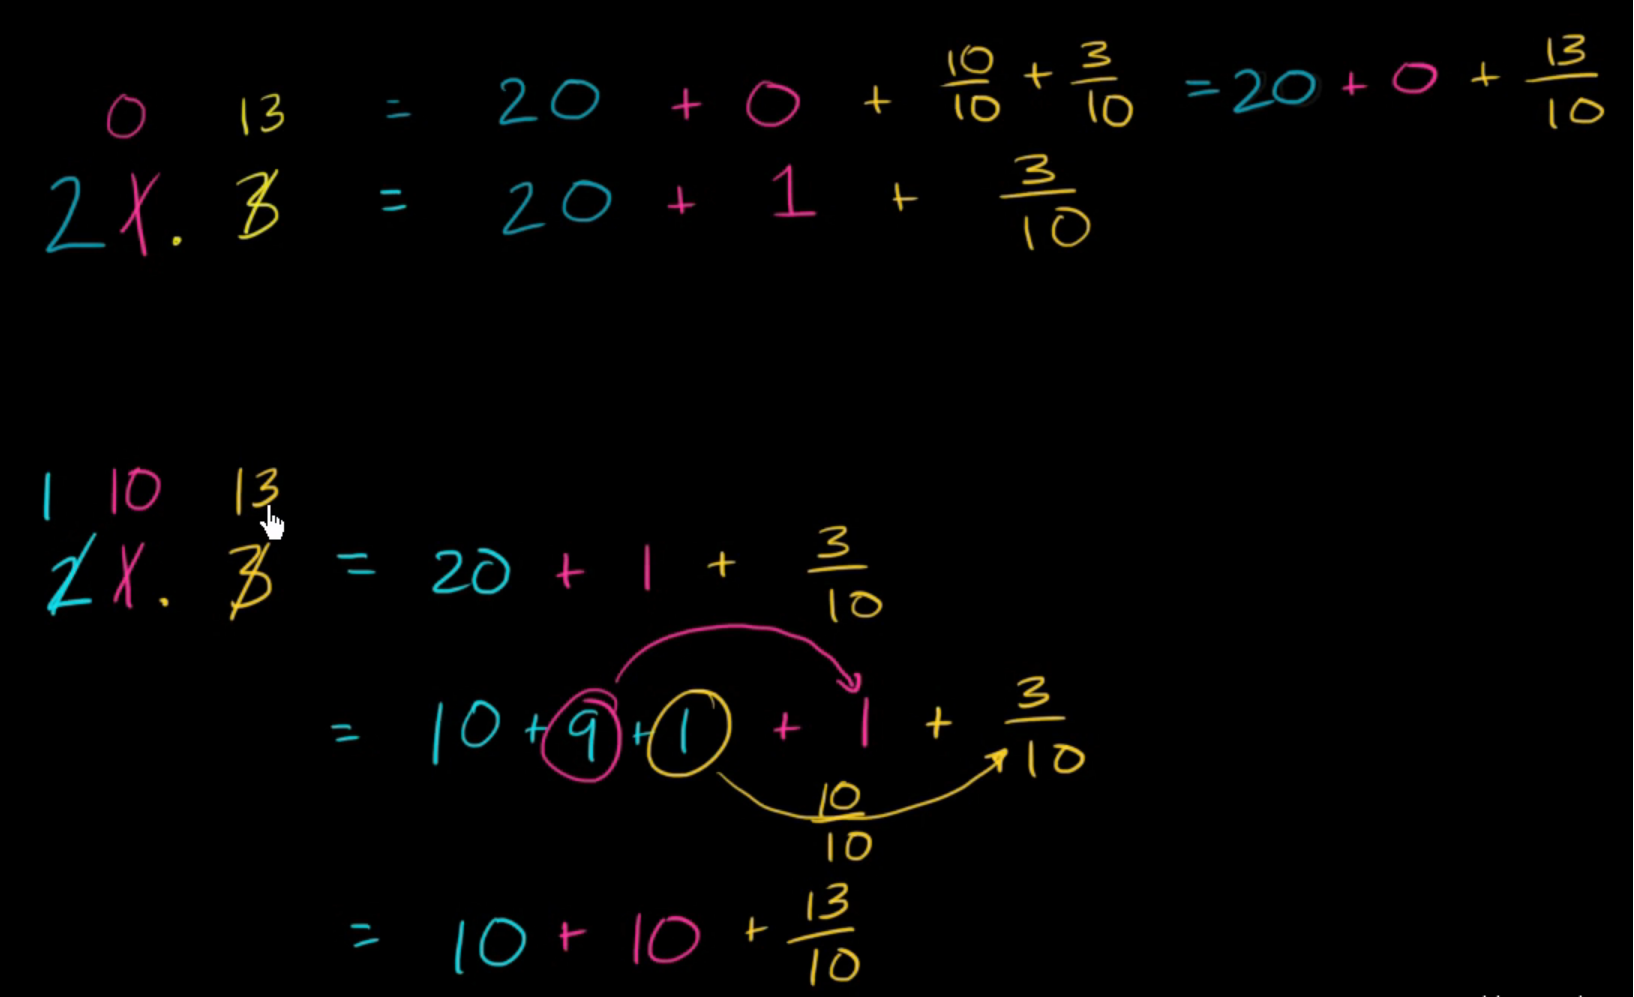 0 13 = 20 + 0 + 10/10 + 3/10 = 20 + 0 + 13/10
21. 3 = 20 + 1 + 3/10
1 10 13
21. 3 = 20 + 1 + 3/10
= 10 + 9 + 1 + 1 + 3/10
10/10
= 10 + 10 + 13/10